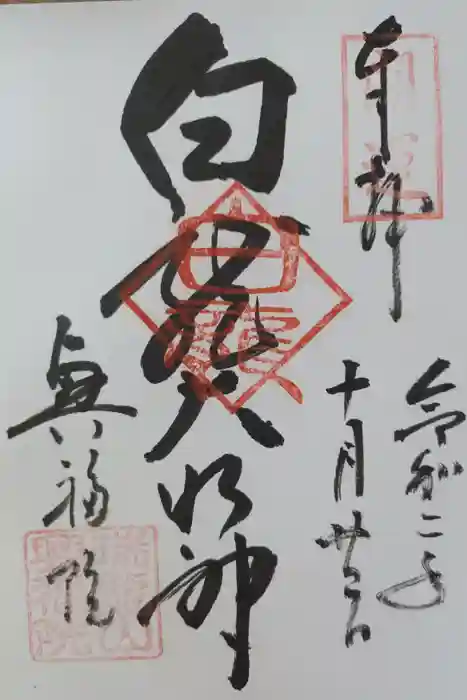 奉拝
令和二年
十月廿二日
白龍大明神
興福院